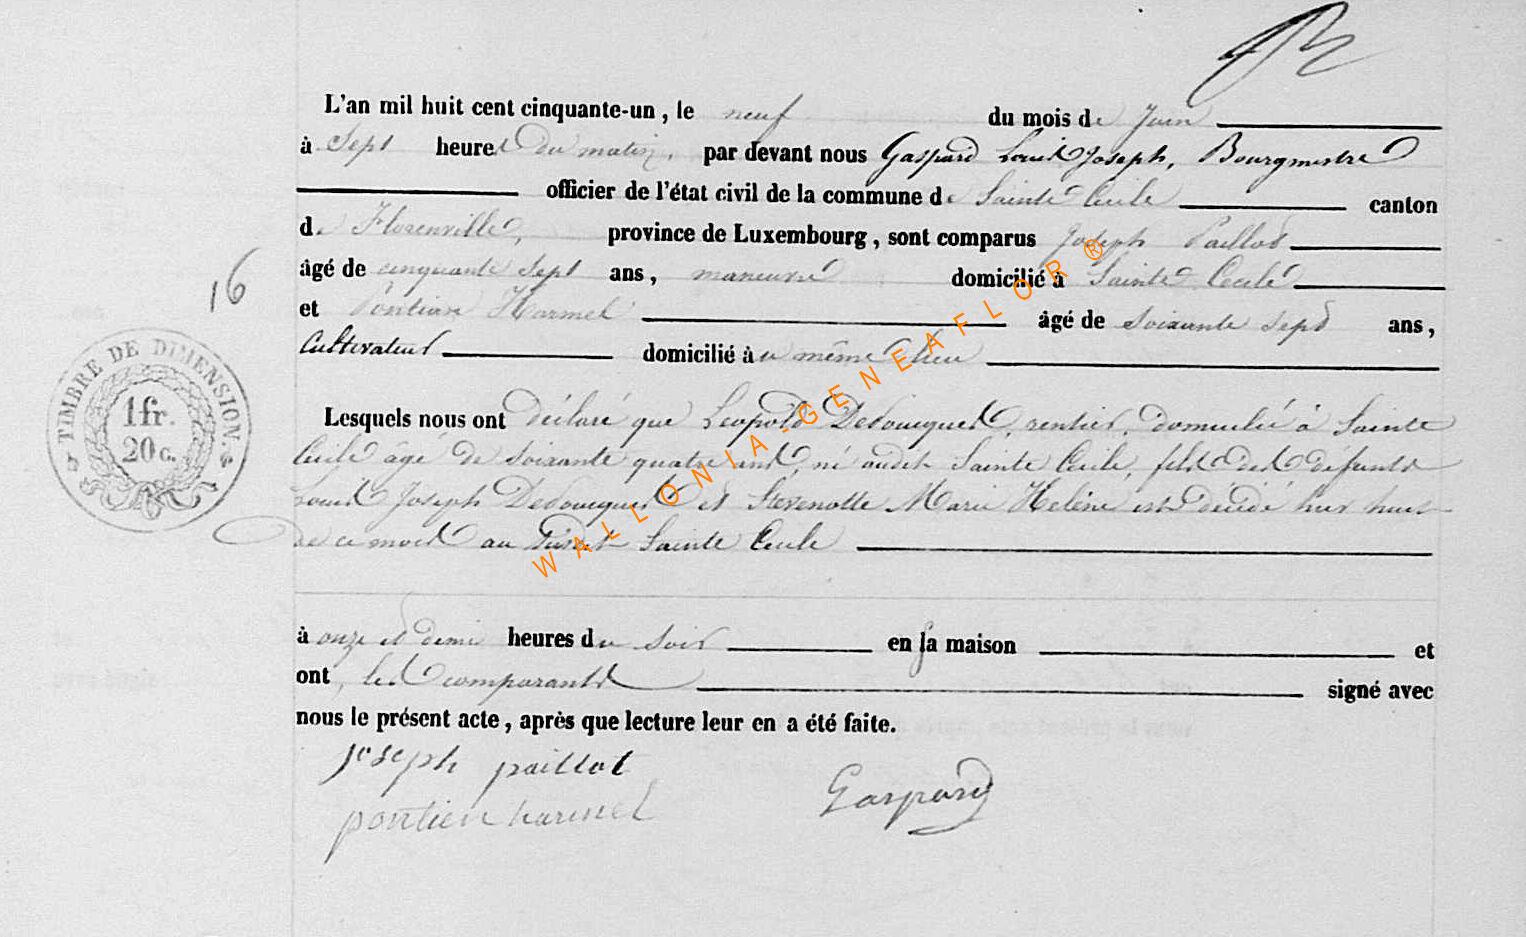 L'an mil huit cent cinquante-un, le neuf du mois de Juin
à Sept heures du matin, par devant nous Gaspard Louis Joseph, Bourgmestre
officier de l'état civil de la commune de Sainte Cecile canton
de Florenville, province de Luxembourg, sont comparus Joseph Paillot
âgé de cinquante sept ans, maneuvre domicilié à Sainte Cecile
16
et Pontien Harmel âgé de soixante sept ans,
Cultivateur domicilié au même lieu
TIMBRE DE DIMENSION.
1 fr.
20 c.
Lesquels nous ont déclaré que Leopold Dedouquet, rentier, domicilié à Sainte
Cecile âgé de soixante quatre ans, né audit Sainte Cecile, fils des defunts
Louis Joseph Dedouquet et Stevenotte Marie Helène est décédé hier huit
de ce mois au Sainte Cecile
à onze et demi heures du soir en sa maison et
ont, les comparants signé avec
nous le présent acte, après que lecture leur en a été faite.
joseph paillot
pontien harmel Gaspard
WALLONIA-GENEAFLOR®